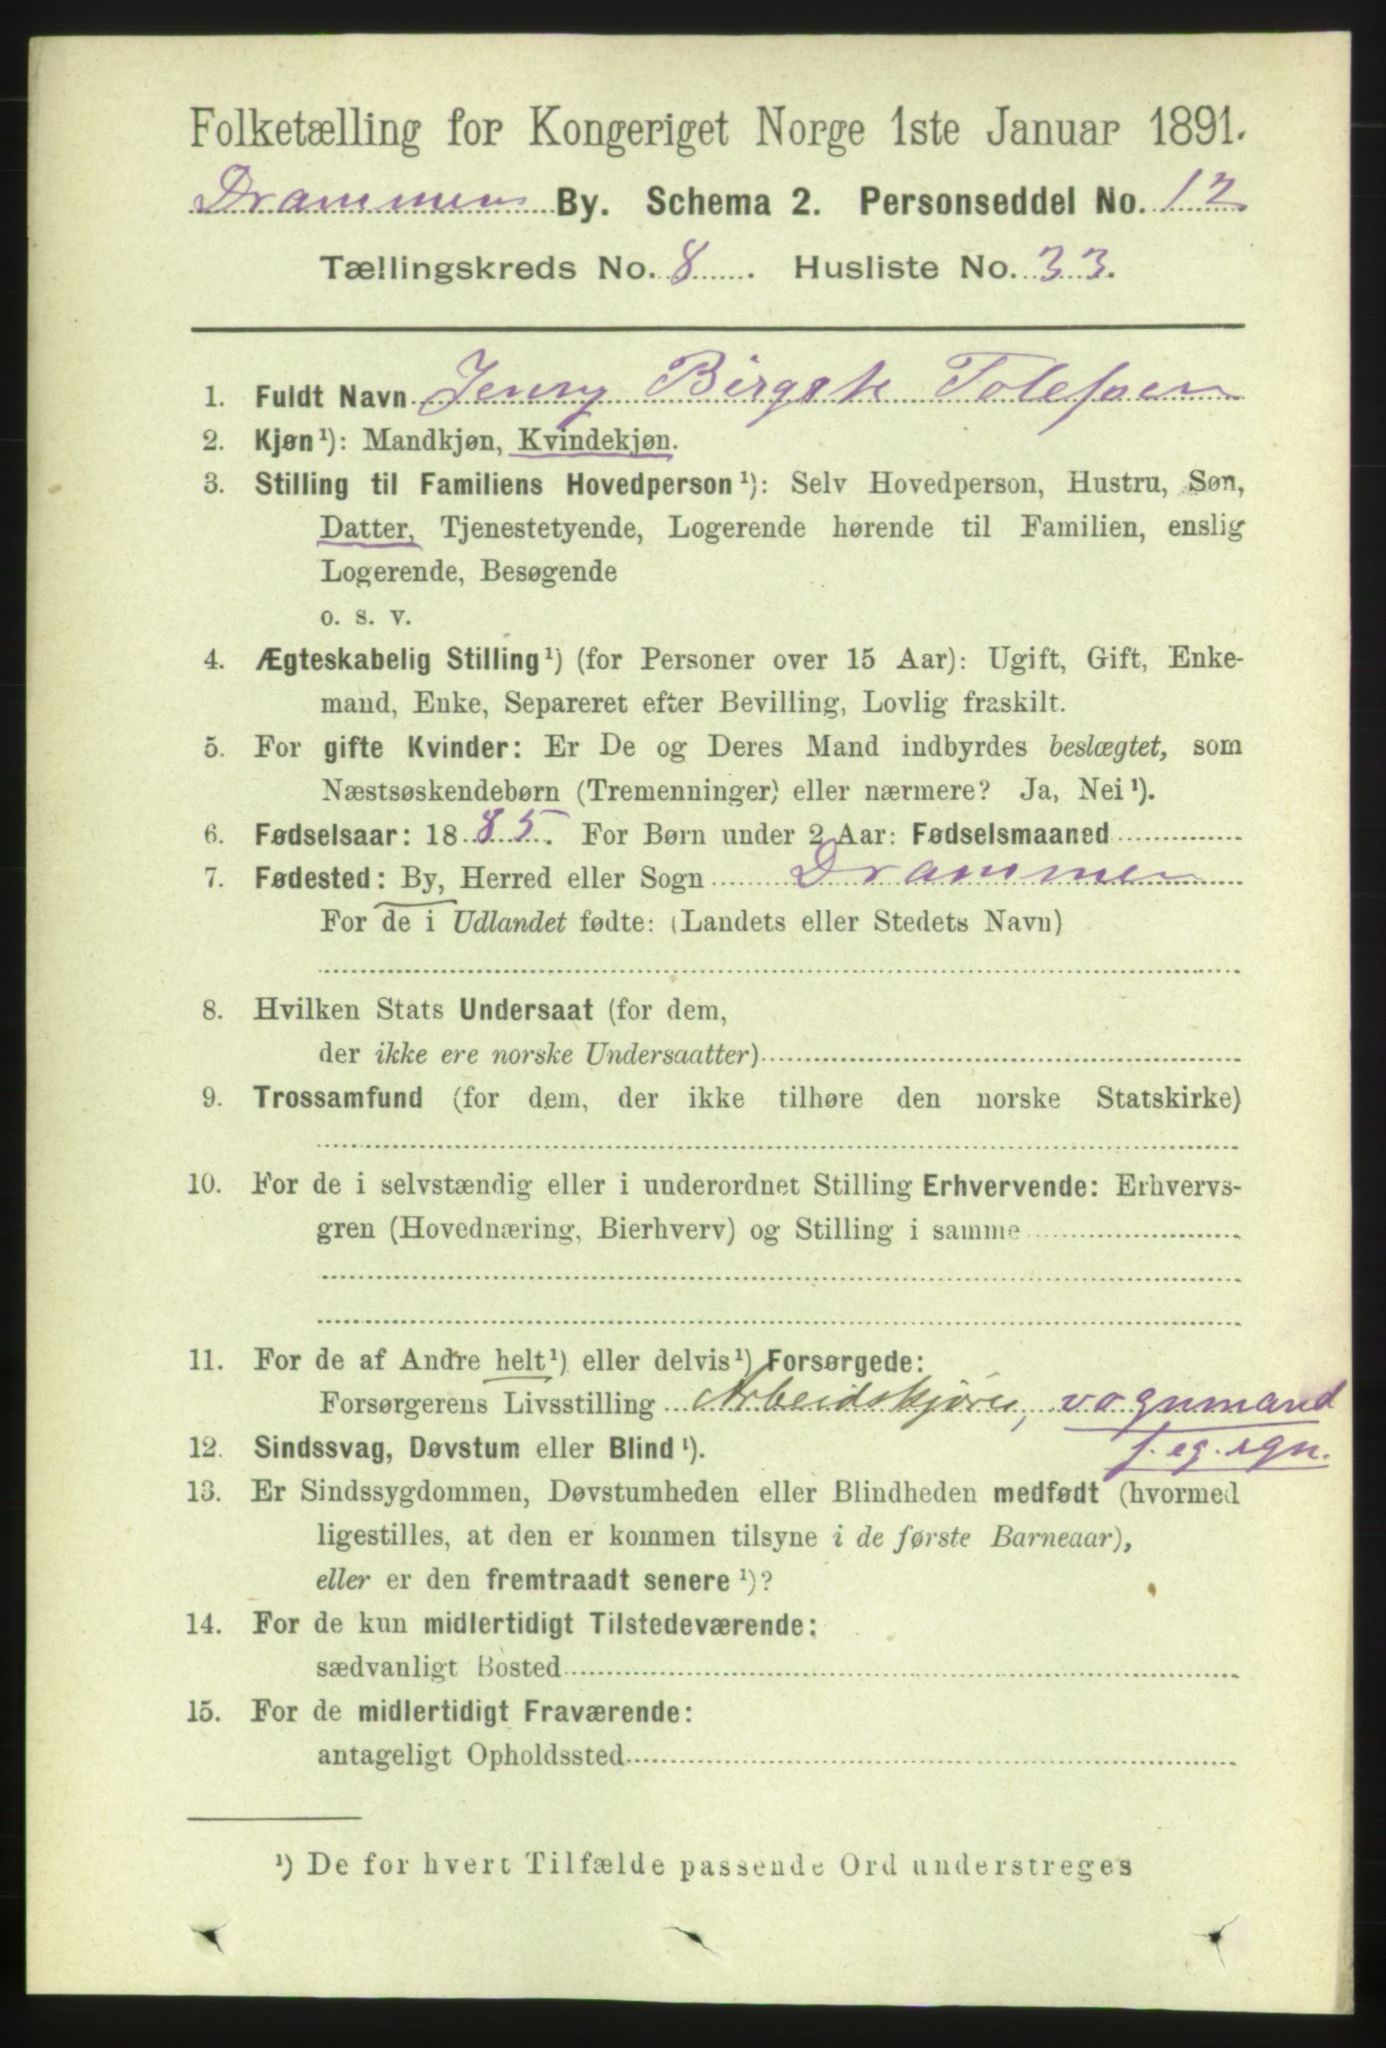 Folketælling for Kongeriget Norge 1ste Januar 1891.
Drammens By. Schema 2. Personseddel No. 12
Tællingskreds No. 8 . Husliste No. 33.
1. Fuldt Navn Jenny Tolefsen
2. Kjøn¹): Mandkjøn, Kvindekjøn.
3. Stilling til Familiens Hovedperson¹): Selv Hovedperson, Hustru, Søn,
Datter, Tjenestetyende, Logerende hørende til Familien, enslig
Logerende, Besøgende
o. s. v.
4. Ægteskabelig Stilling¹) (for Personer over 15 Aar): Ugift, Gift, Enke-
mand, Enke, Separeret efter Bevilling, Lovlig fraskilt.
5. For gifte Kvinder: Er De og Deres Mand indbyrdes beslægtet, som
Næstsøskendebørn (Tremenninger) eller nærmere? Ja, Nei¹).
6. Fødselsaar: 1885. For Børn under 2 Aar: Fødselsmaaned
7. Fødested: By, Herred eller Sogn Drammen
For de i Udlandet fødte: (Landets eller Stedets Navn)
8. Hvilken Stats Undersaat (for dem,
der ikke ere norske Undersaatter)
9. Trossamfund (for dem, der ikke tilhøre den norske Statskirke)
10. For de i selvstændig eller i underordnet Stilling Erhvervende: Erhvervs-
gren (Hovednæring, Bierhverv) og Stilling i samme
11. For de af Andre helt¹) eller delvis¹) Forsørgede:
Forsørgerens Livsstilling Arbeidskjører, vognmand
f. eg. regn.
12. Sindssvag, Døvstum eller Blind¹).
13. Er Sindssygdommen, Døvstumheden eller Blindheden medfødt (hvormed
ligestilles, at den er kommen tilsyne i de første Barneaar),
eller er den fremtraadt senere¹)?
14. For de kun midlertidigt Tilstedeværende:
sædvanligt Bosted
15. For de midlertidigt Fraværende:
antageligt Opholdssted
¹) De for hvert Tilfælde passende Ord understreges